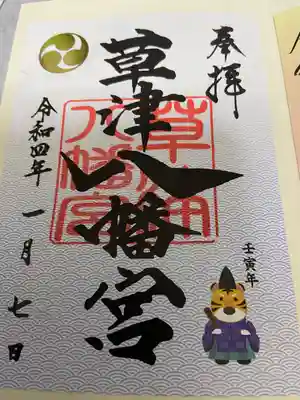 奉拝
草津八幡宮
草津
八幡宮
壬寅年
令和四年
一月七日